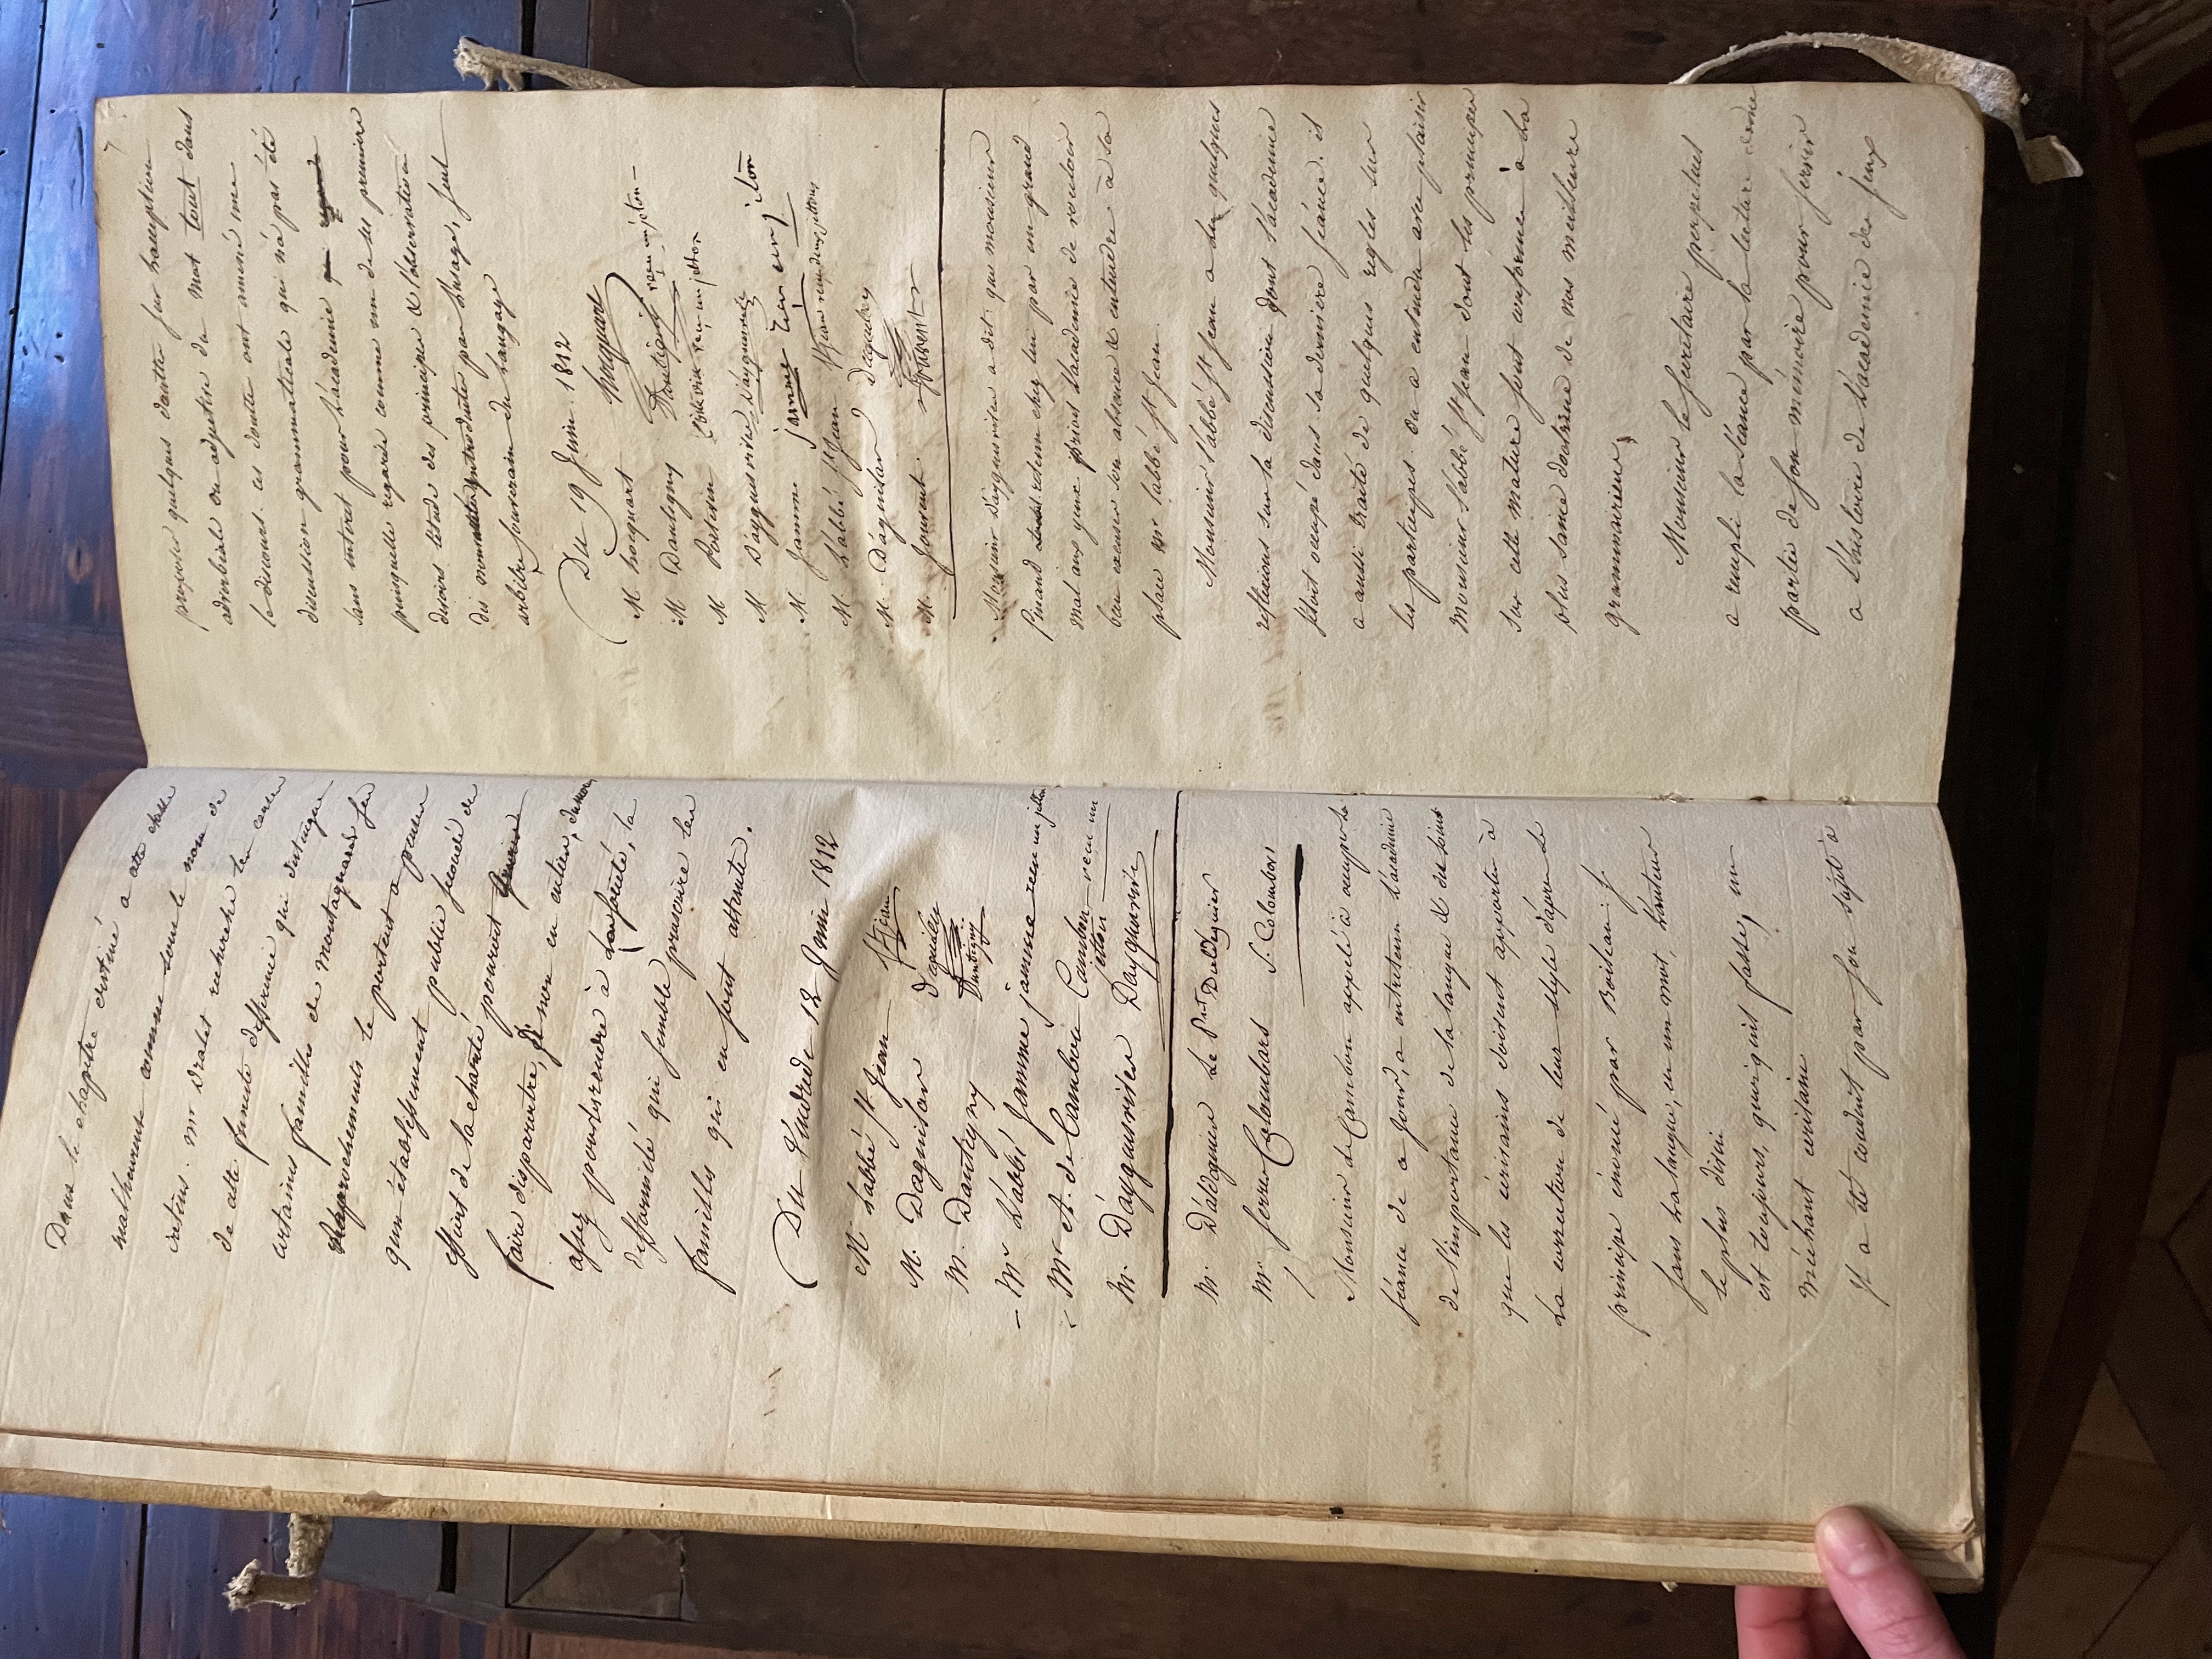 Dans le chapitre destiné a cette classe
malheureuse connue sous le nom de
crétins. mr Dralet recherche les causes
de cette funeste difference qui distingue
certaines familles de montagnards ses
raprochements le portent a penser
qun établissement public secondé des
efforts de la charité pouroit
faire disparoitre, si non en entier, du moins
assez pour les rendre à la société, la
difformité qui semble proscrire les
familles qui en sont atteintes.
Du Vendredi 12 Juin 1812
M L'abbé St Jean St Jean
M. Daguilar d'aguilar
M. Dantigny Dantigny
Mr L'abbé Jamme jamme reçu un jetton
Mr A. de Cambon Cambon reçu un jetton
M. Dayguesvives Dayguesvives
M. Daldeguier Le Pt Daldeguier
Mr serres Colombars S. Colombars
Monsieur de Cambon appelé à occuper la
séance de ce jour, a entretenu L'académie
de l'importance de la langue & des soins
que les écrivains doivent apporter à
La correction de leur style d'après le
principe énoncé par Boileau:
sans La langue, en un mot, L'auteur
le plus divin
est toujours, quoi qu'il fasse, un
méchant écrivain
Il a été conduit par son sujet à
7
proposer quelques doutes sur l'acception
adverbiale ou adjective du mot tout dans
le discours. ces doutes ont amené une
discussion grammaticale qui n'a pas été
sans intéret pour L'academie
puisquelle regarde comme un de ses premiers
devoirs l'étude des principes & l'observation
des introduites par L'usage, seul
arbitre souverain du langage
Du 19 Juin. 1812
M hocquart hocquart
M Dantigny Dantigny reçu un jeton
M Poitevin Poitevin reçu un jetton
M D'ayguesvives D'ayguesvives
M Jamme jamme reçu un jeton
M. L'abbé St Jean St Jean reçu deux jettons
M. D'aguilar d'aguilar
M. Jouvent. Jouvent
Monsieur Dayguesvives a dit que monsieur
Pinaud retenu chez lui par un grand
mal aux yeux prioit L'académie de vouloir
bien excuser son absence & entendre à sa
place mr l'abbé St Jean.
Monsieur L'abbé St Jean a lu quelques
reflexions sur la discussion dont L'académie
s'étoit occupé dans sa derniere séance. il
a aussi traité de quelques regles sur
les participes. on a entendu avec plaisir
monsieur L'abbé St Jean dont les principes
sur cette matiere sont conformes à la
plus saine doctrine de nos meilleurs
grammairiens,
Monsieur le secrétaire perpetuel
a rempli la séance par la lecture d'une
partie de son mémoire pour servir
a L'histoire de L'académie des jeux